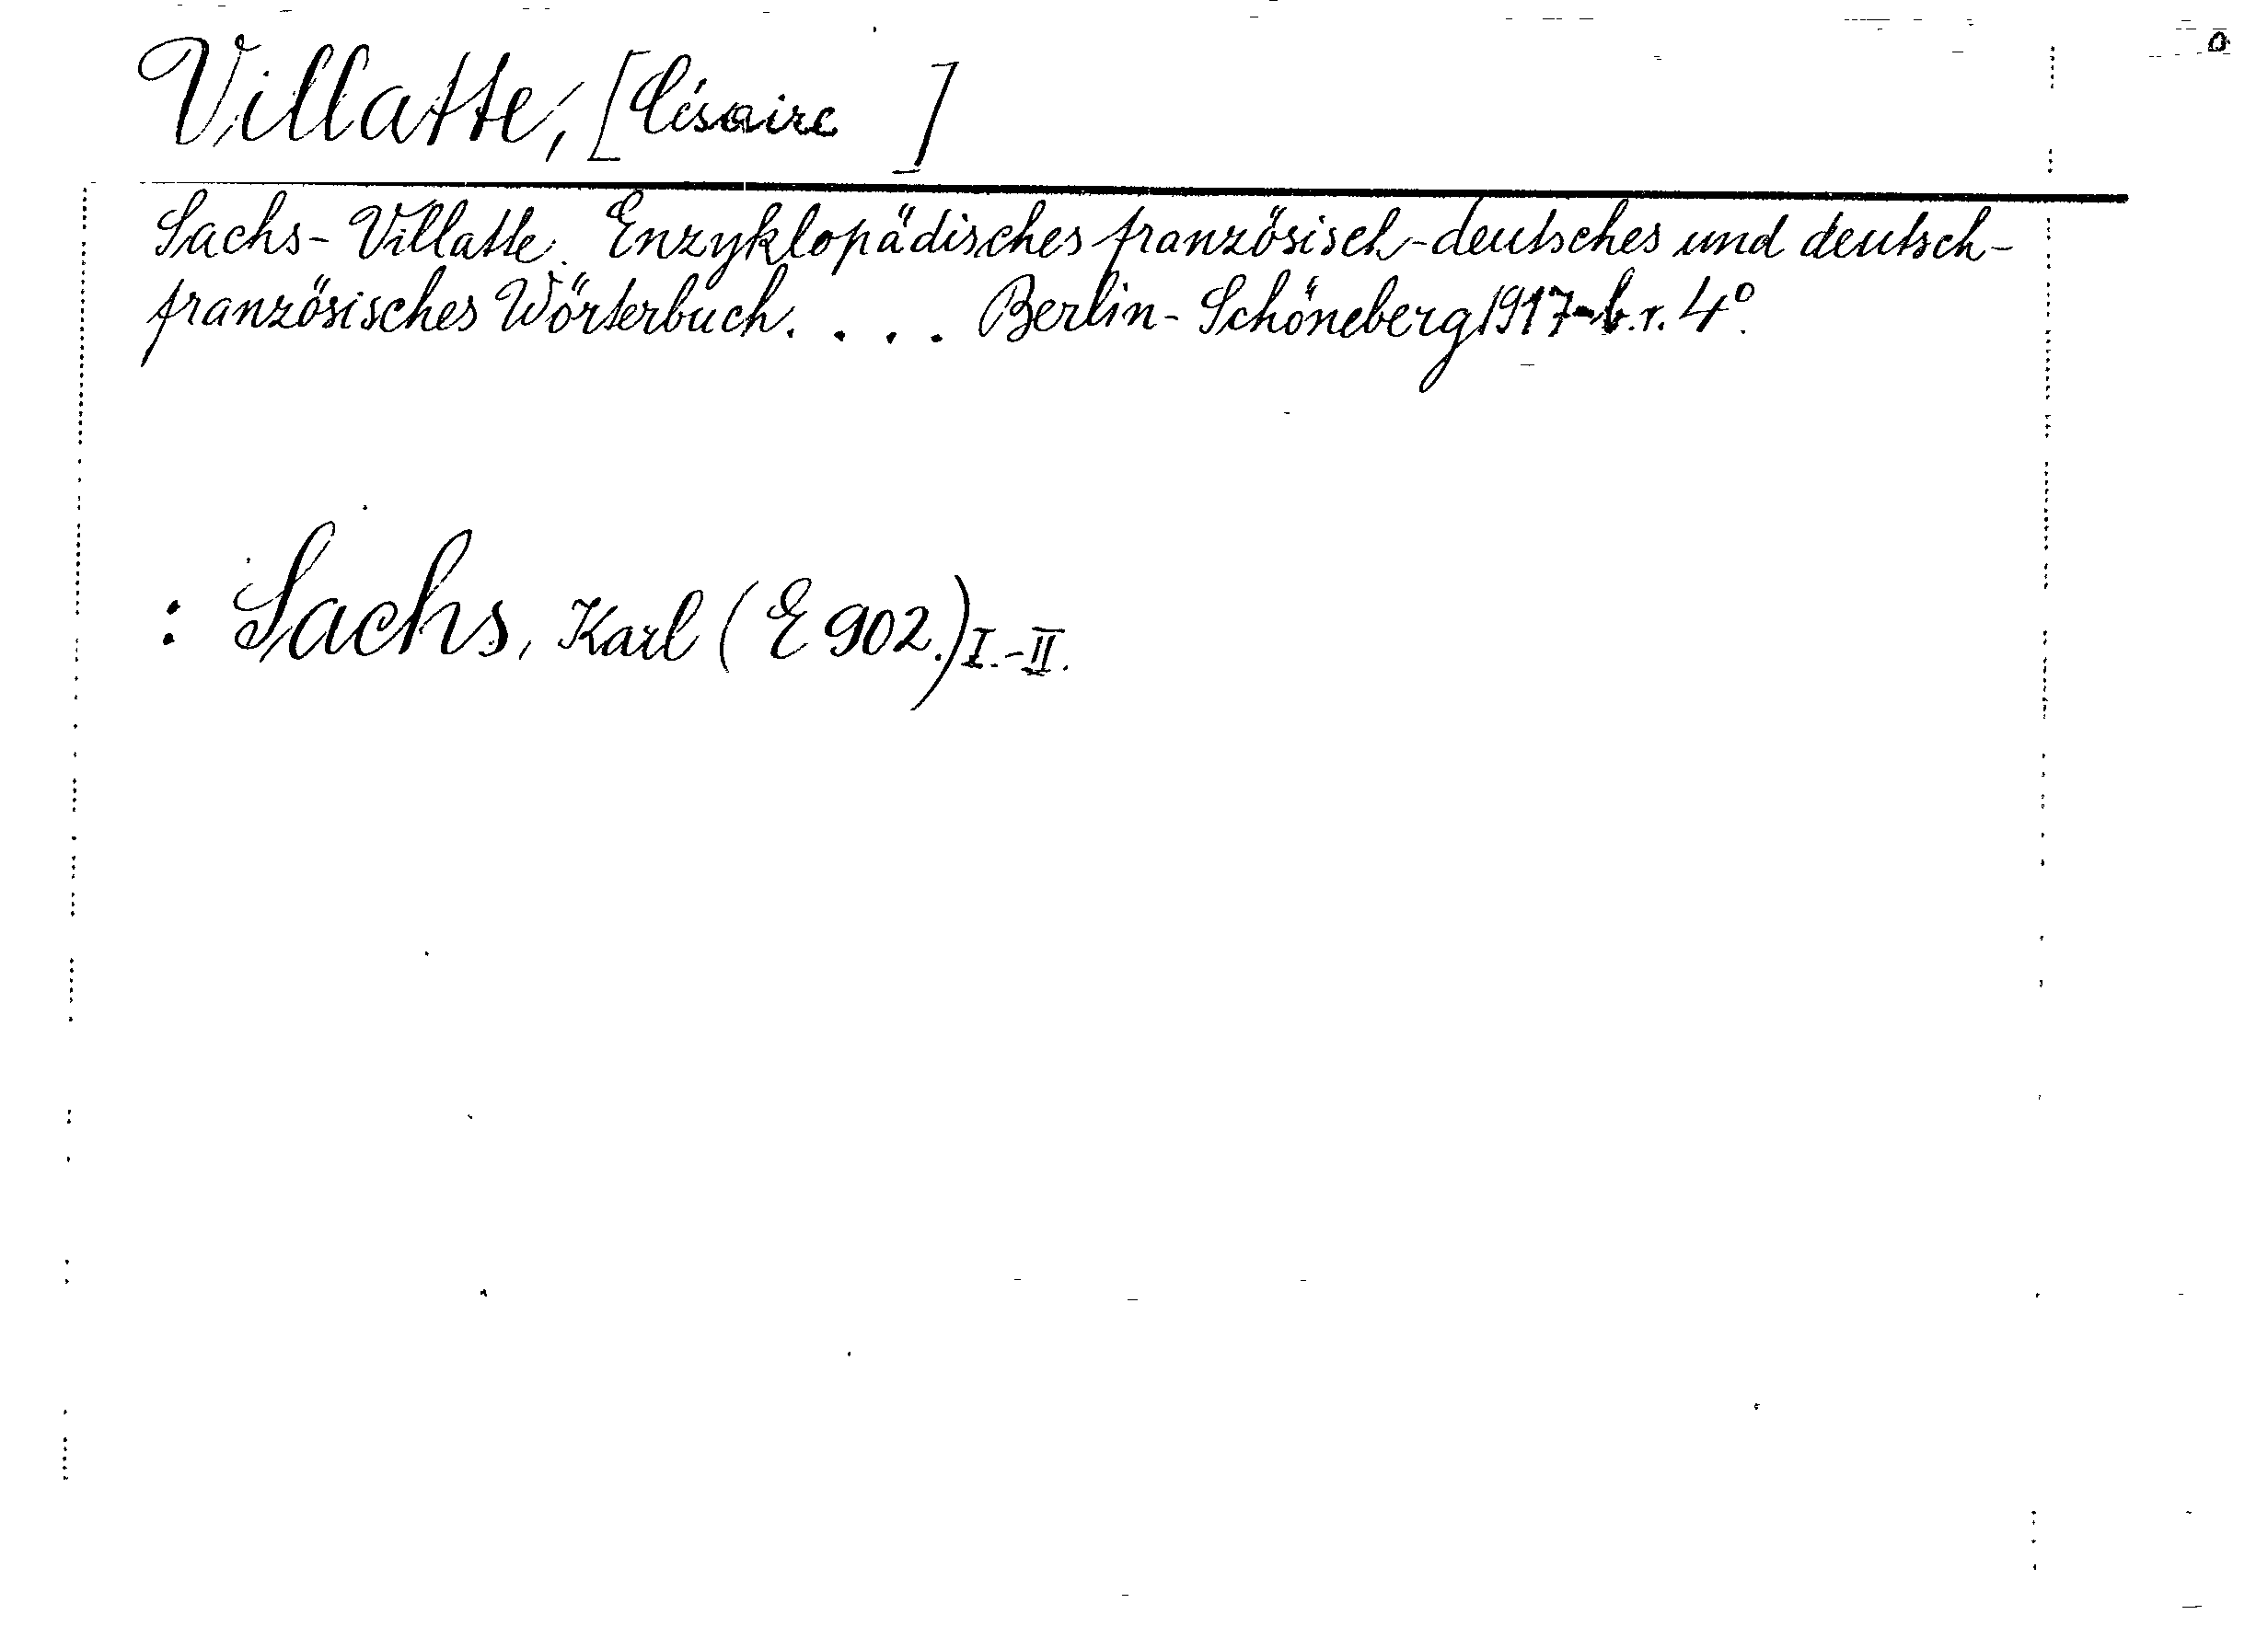 Villatte, [Césaire ]
Sachs-Villatte. Enzyklopädisches französisch-deutsches und deutsch-
französisches Wörterbuch. . . . Berlin-Schöneberg 1917-b.r. 4°.
: Sachs, Karl (E 902.) I.-II.